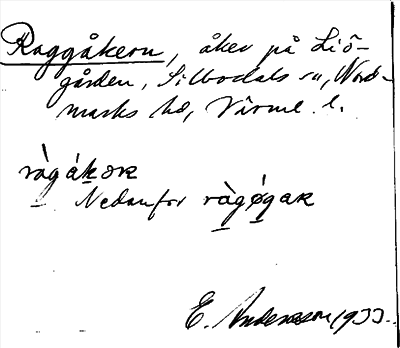 Raggåkern, åker på Liö-
gården, Silbodals sn, Nord-
marks hd, Värml. l.
ràgákɔʀ
Nedanför ràgǿgaʀ
E. Andersson 1933.